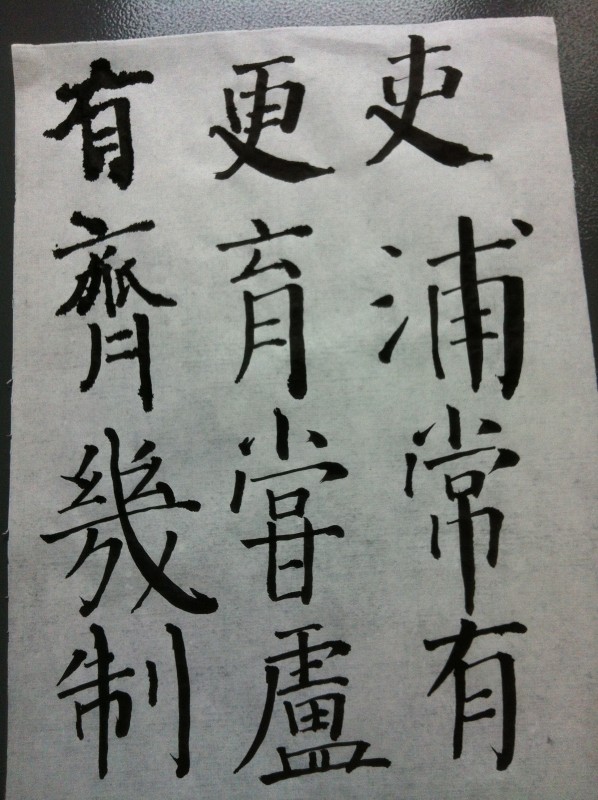 吏浦常有
更育甞盧
有齊幾制